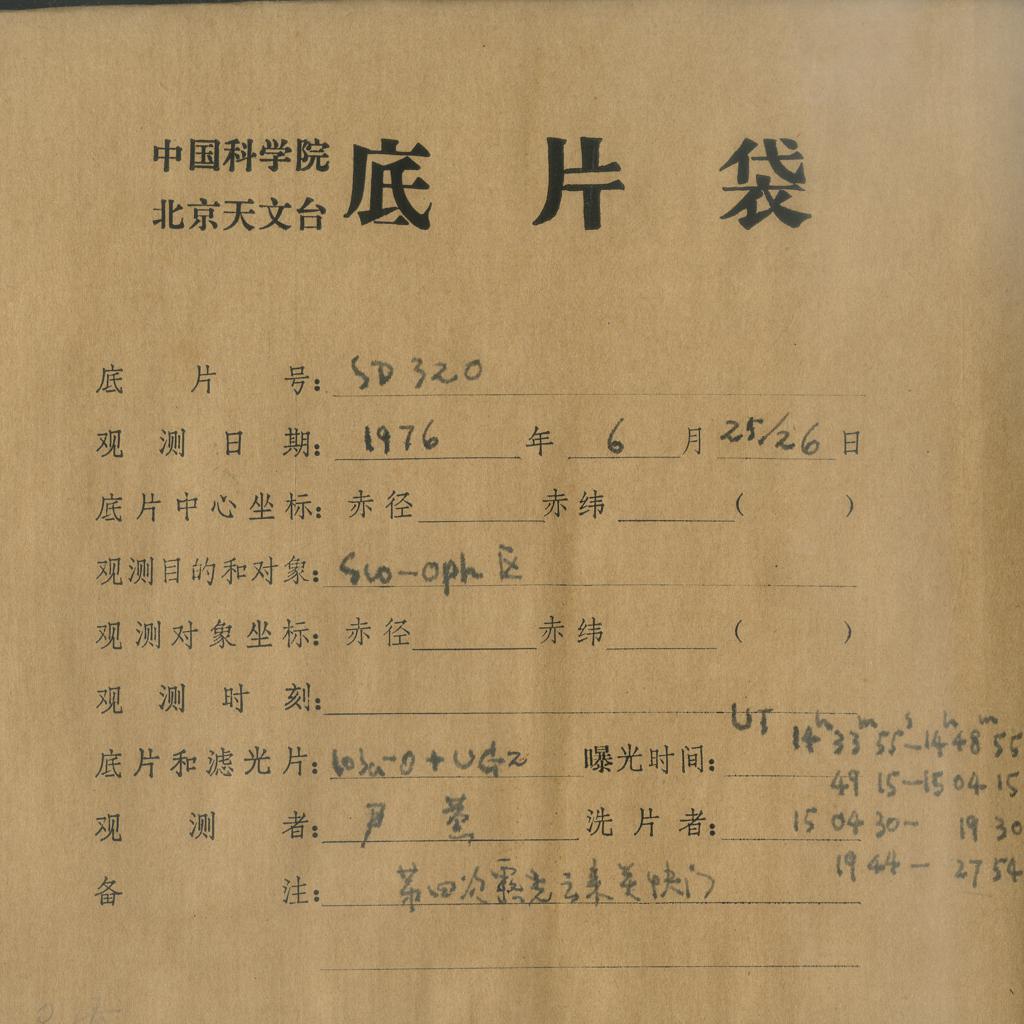 中国科学院
北京天文台
底片袋
底片号: SD 320
观测日期: 1976 年 6 月 25/26 日
底片中心坐标: 赤径 赤纬 ( )
观测目的和对象: Sco-Oph 区
观测对象坐标: 赤径 赤纬 ( )
观测时刻:
UT 14h 33m 55s-14h 48m 55
底片和滤光片: 103a-O + UG2 曝光时间:
49 15-15 04 15
观测者: 洗片者: 15 04 30- 19 30
19 44- 27 54
备注: 第四次露光云来关快门